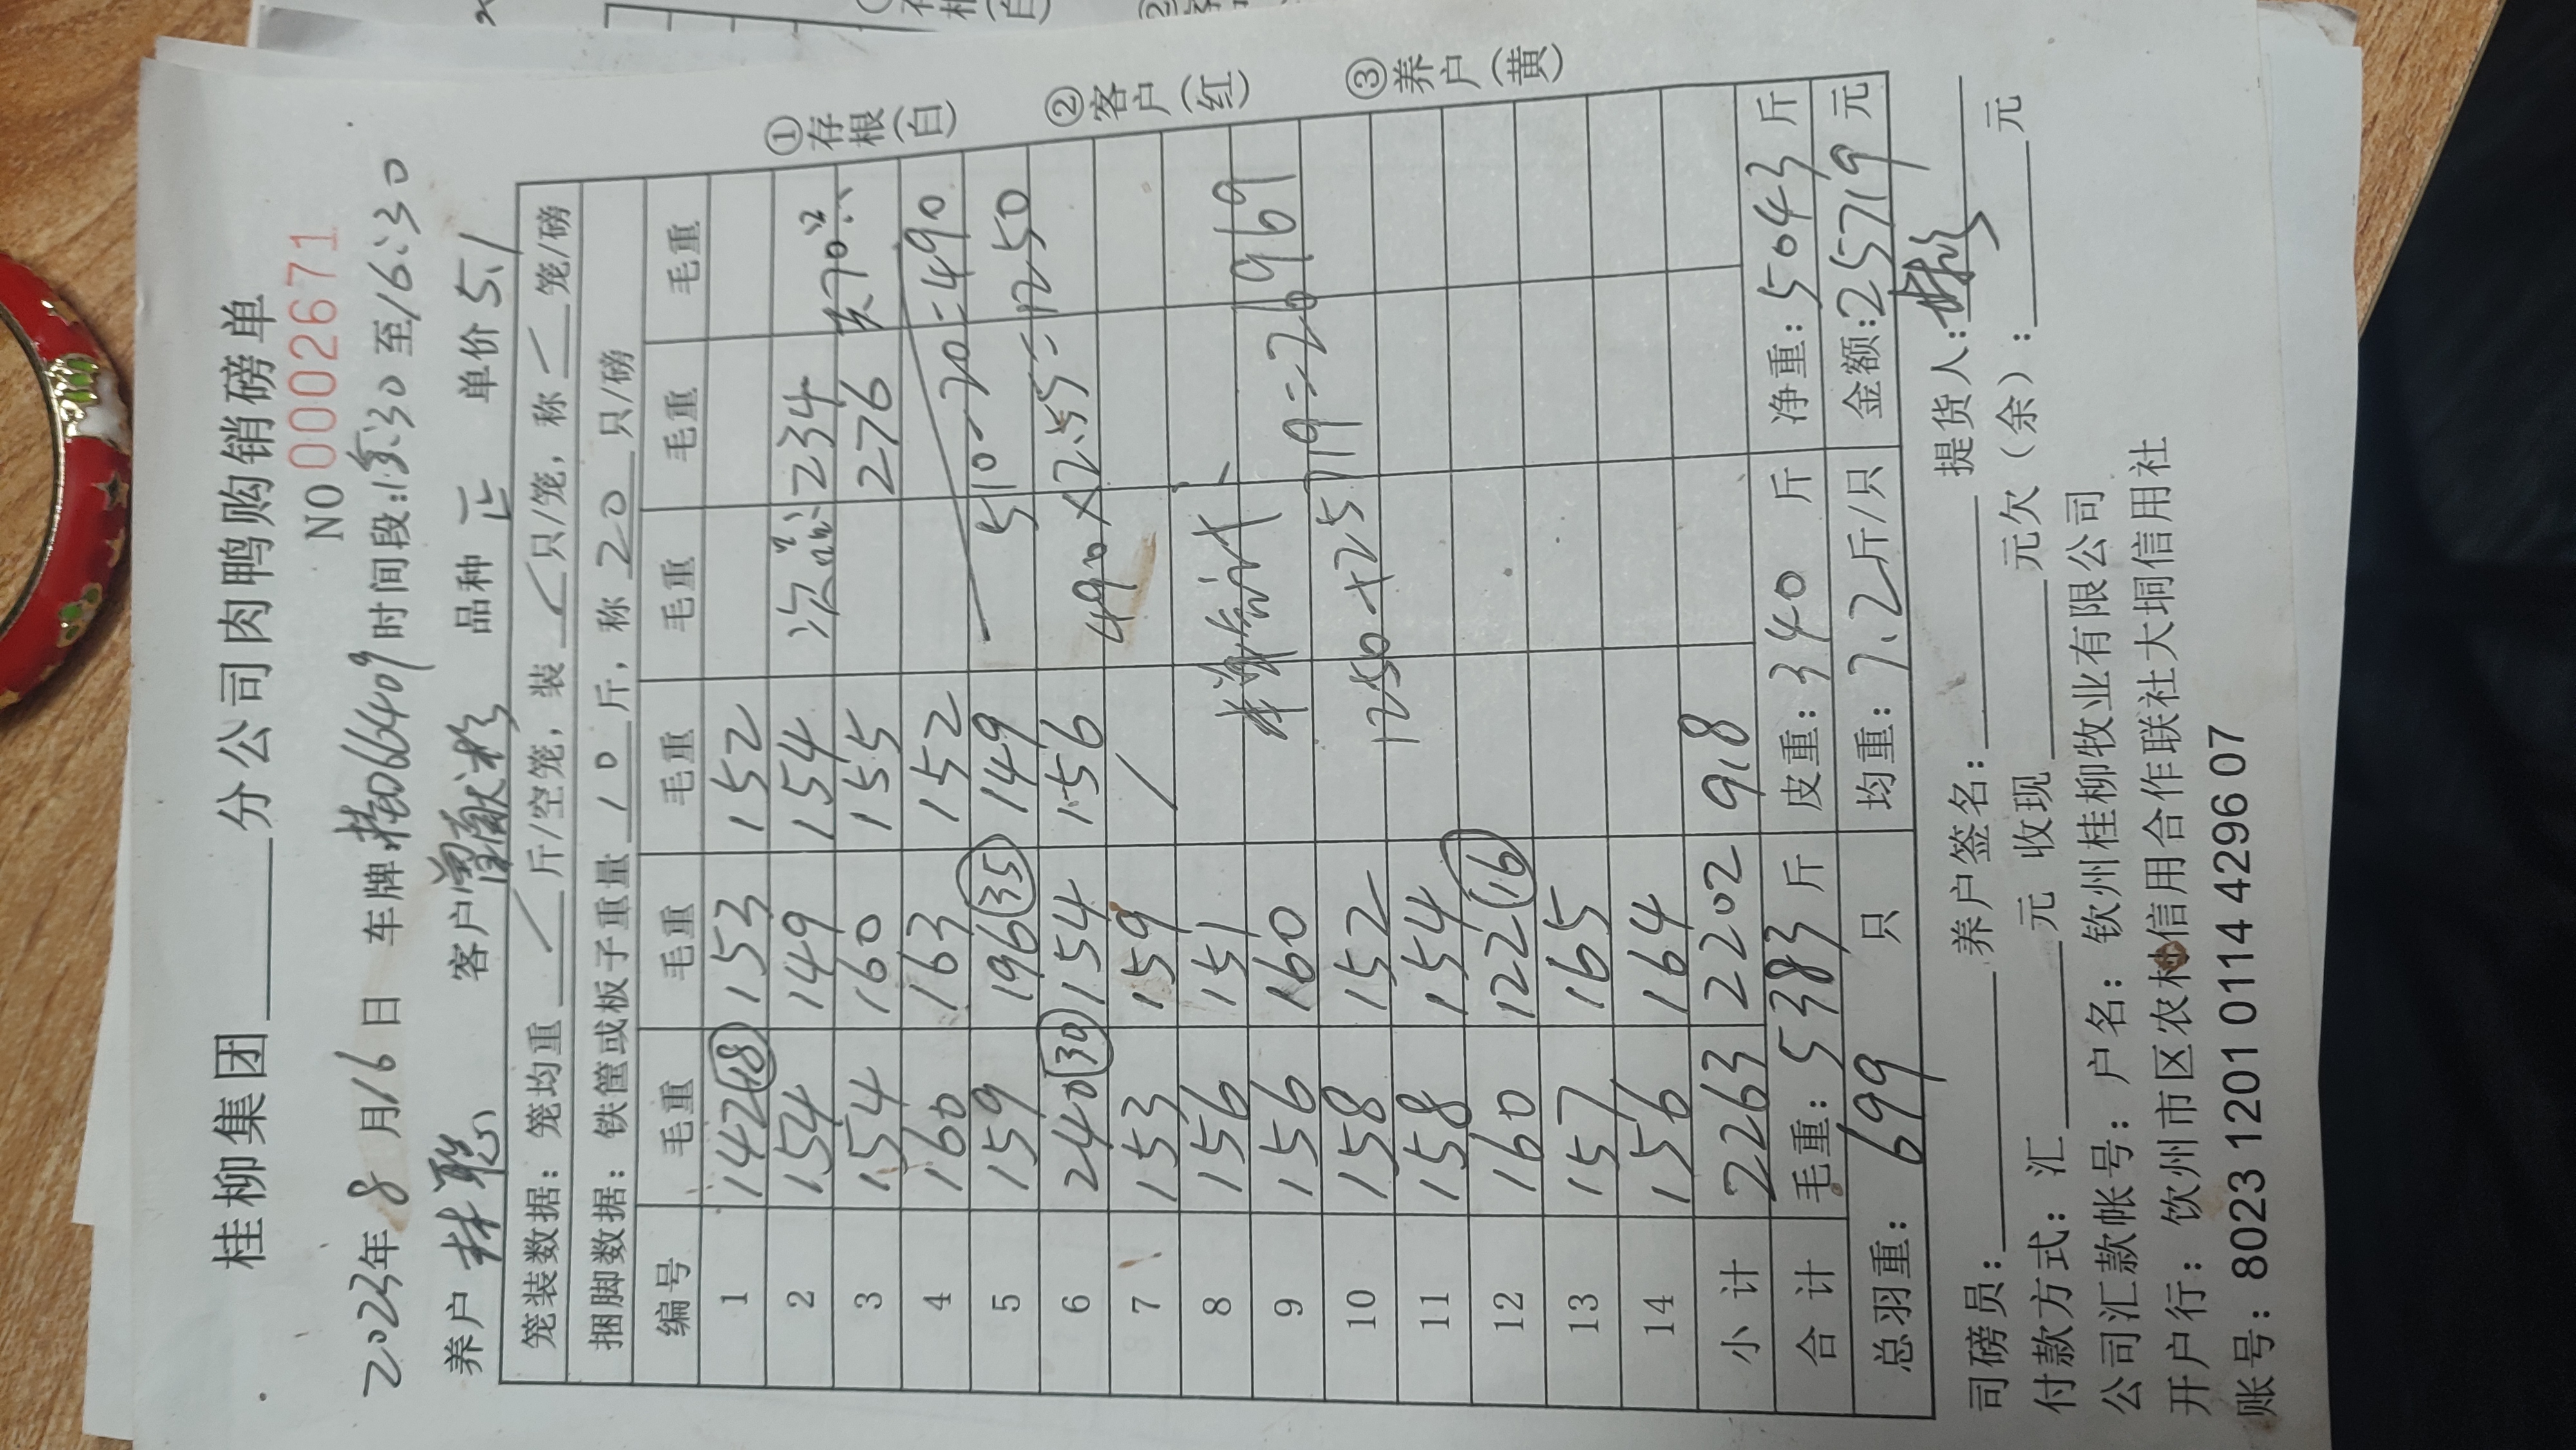 桂柳集团 分公司肉鸭购销磅单
NO 0002671
2023年 8 月 16 日 车牌 066409 时间段: :30 至 16:30
养户 林聪 客户 曾献 品种 正 单价 5.1
笼装数据: 笼均重 斤/空笼, 装 只/笼, 称 笼/磅
捆脚数据: 铁筐或板子重量 10 斤, 称 20 只/磅
编号 毛重 毛重 毛重 毛重 毛重 毛重
1 142 (18) 153 152
2 154 149 154 次 234
3 154 160 155 276 70
4 160 163 152
5 159 196 (35) 149 510-20=490
6 240 (30) 154 156 490×2.55=1250
7 153 159
8 156 151
9 156 160
10 158 152 1250+25719=26969
11 158 154
12 160 122 (16)
13 157 165
14 156 164
小计 2263 2202 918
合计 毛重: 5383 斤 皮重: 340 斤 净重: 5043 斤
总羽重: 699 只 均重: 7.2 斤/只 金额: 25719 元
①存根(白) ②客户(红) ③养户(黄)
司磅员: 养户签名: 提货人:
付款方式: 汇 元 收现 元欠(余): 元
公司汇款帐号: 户名: 钦州桂柳牧业有限公司
开户行: 钦州市区农村信用合作联社大垌信用社
账号: 8023 1201 0114 4296 07